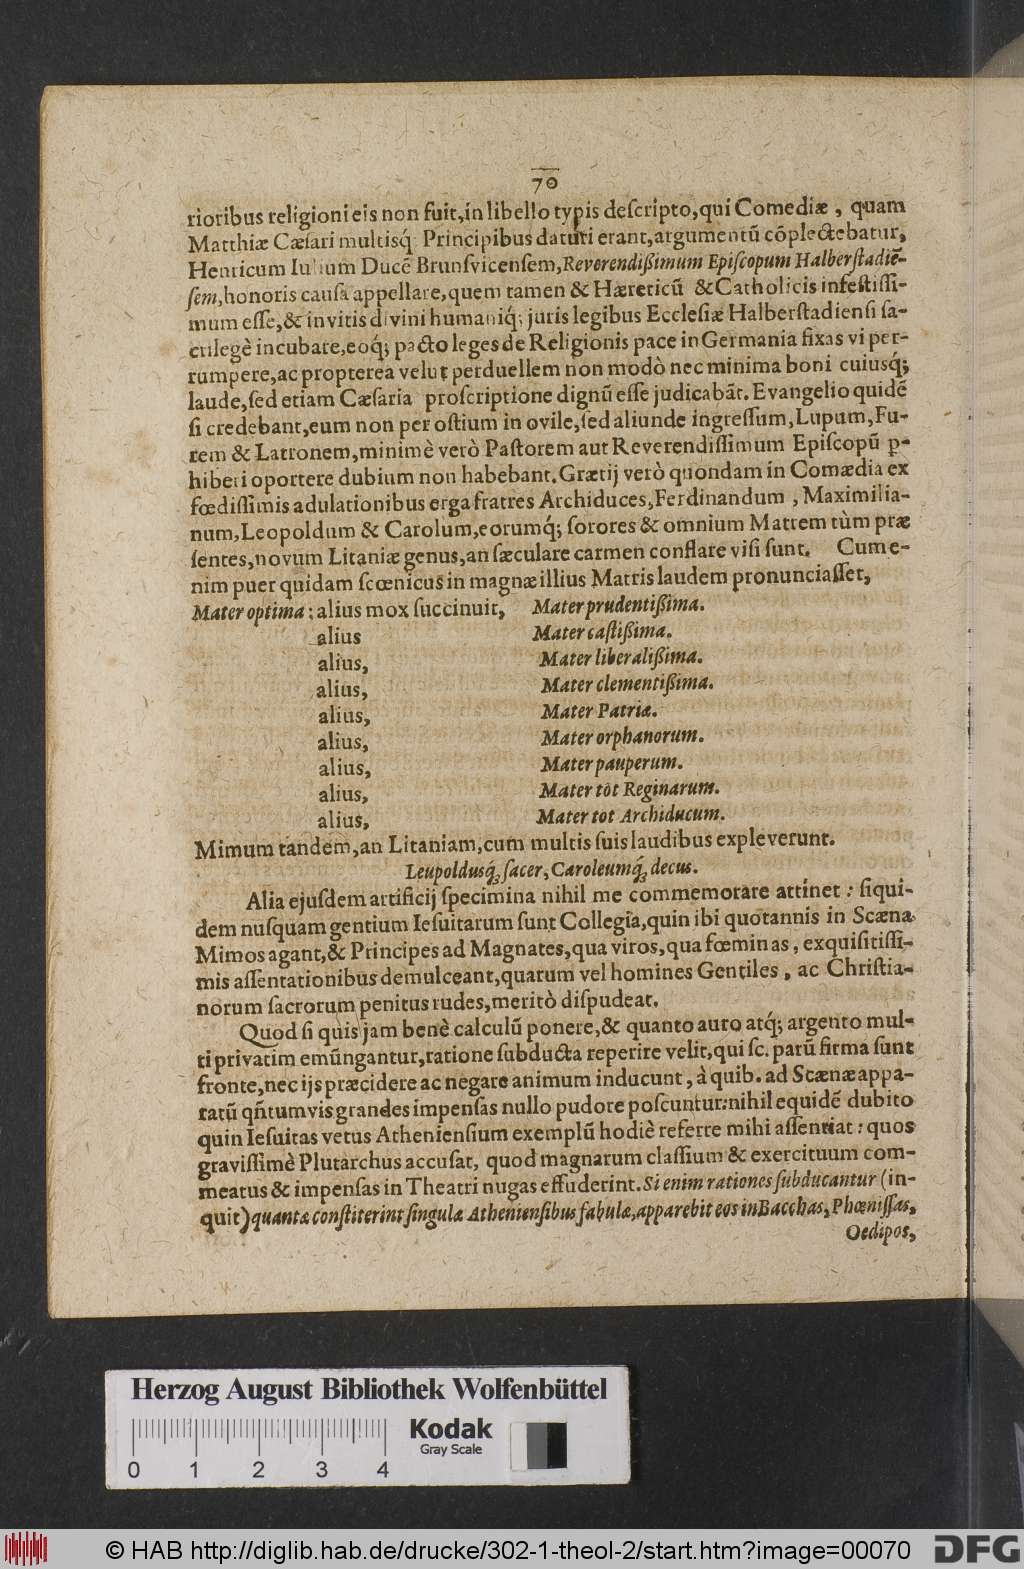 70
rioribus religioni eis non fuit, in libello typis descripto, qui Comediæ, quam
Matthiæ Cæsari multisq́; Principibus daturi erant, argumentũ cõplectebatur,
Henricum Iulium Ducẽ Brunsvicensem, Reverendißimum Episcopum Halberstadiẽ-
sem, honoris causa appellare, quem tamen & Hæreticũ & Catholicis infestissi-
mum esse, & invitis divini humaniq́; juris legibus Ecclesiæ Halberstadiensi sa-
crilegè incubare, eoq́; pacto leges de Religionis pace in Germania fixas vi per-
rumpere, ac propterea velut perduellem non modò nec minima boni cuiusq́;
laude, sed etiam Cæsaria proscriptione dignũ esse judicabãt. Evangelio quidẽ
si credebant, eum non per ostium in ovile, sed aliunde ingressum, Lupum, Fu-
rem & Latronem, minimè verò Pastorem aut Reverendissimum Episcopũ p-
hiberi oportere dubium non habebant. Grætij verò quondam in Comædia ex
fœdissimis adulationibus erga fratres Archiduces, Ferdinandum, Maximilia-
num, Leopoldum & Carolum, eorumq́; sorores & omnium Matrem tùm præ
sentes, novum Litaniæ genus, an sæculare carmen conflare visi sunt. Cum e-
nim puer quidam scœnicus in magnæ illius Matris laudem pronunciasset,
Mater optima: alius mox succinuit, Mater prudentißima.
alius Mater castißima.
alius, Mater liberalißima.
alius, Mater clementißima.
alius, Mater Patriæ.
alius, Mater orphanorum.
alius, Mater pauperum.
alius, Mater tòt Reginarum.
alius, Mater tot Archiducum.
Mimum tandem, an Litaniam, cum multis suis laudibus expleverunt.
Leupoldusq́; sacer, Caroleumq́; decus.
Alia ejusdem artificij specimina nihil me commemorare attinet: siqui-
dem nusquam gentium Iesuitarum sunt Collegia, quin ibi quotannis in Scæna
Mimos agant, & Principes ad Magnates, qua viros, qua fœminas, exquisitissi-
mis assentationibus demulceant, quarum vel homines Gentiles, ac Christia-
norum sacrorum penitus rudes, meritò dispudeat.
Quod si quis jam benè calculũ ponere, & quanto auro atq́; argento mul-
ti privatim emũngantur, ratione subducta reperire velit, qui sc. parũ firma sunt
fronte, nec ijs præcidere ac negare animum inducunt, à quib. ad Scænæ appa-
ratũ qñtumvis grandes impensas nullo pudore poscuntur: nihil equidẽ dubito
quin Iesuitas vetus Atheniensium exemplũ hodiè referre mihi assentiat: quos
gravissimè Plutarchus accusat, quod magnarum classium & exercituum com-
meatus & impensas in Theatri nugas effuderint. Si enim rationes subducantur (in-
quit) quantæ constiterint singulæ Atheniensibus fabulæ, apparebit eos in Bacchas, Phœnissas,
Oedipos,
Herzog August Bibliothek Wolfenbüttel
0 1 2 3 4
Kodak
Gray Scale
© HAB http://diglib.hab.de/drucke/302-1-theol-2/start.htm?image=00070
DFG